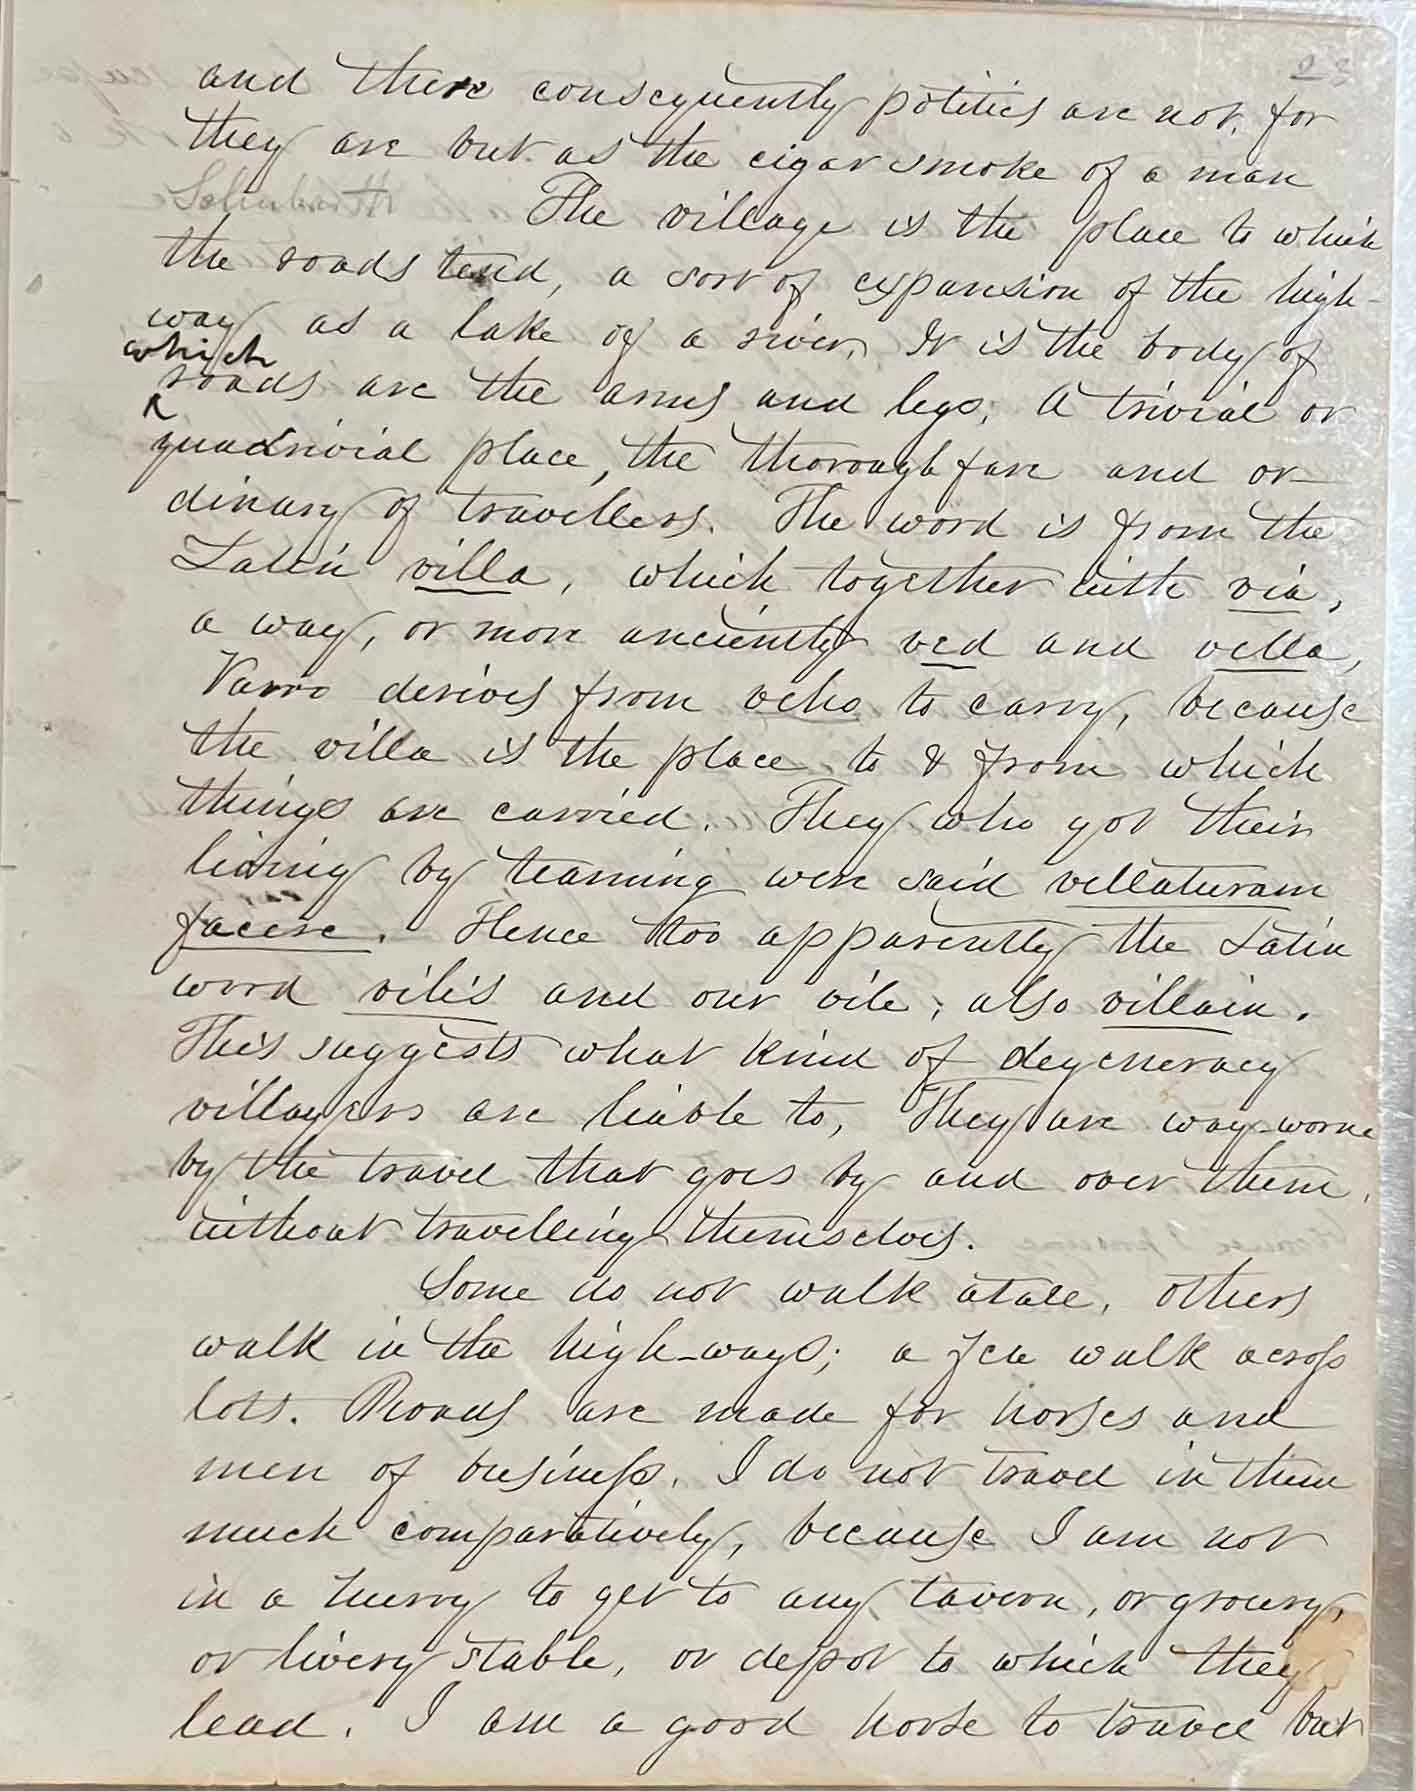 23
and there consequently politics are not, for
they are but as the cigar smoke of a man
The village is the place to which
the roads tend, a sort of expansion of the high-
way as a lake of a river. It is the body of
which
roads are the arms and legs; A trivial or
quadrivial place, the thoroughfare and or-
dinary of travellers. The word is from the
Latin villa, which together with via,
a way, or more anciently ved and vella,
Varro derives from veho to carry, because
the villa is the place to & from which
things are carried. They who got their
living by teaming were said vellaturam
facere. Hence too apparently the Latin
word vilis and our vile; also villain.
This suggests what kind of degeneracy
villagers are liable to, They are way-worn
by the travel that goes by and over them,
without travelling themselves.
Some do not walk at all, others
walk in the high-ways; a few walk across
lots. Roads are made for horses and
men of business. I do not travel in them
much comparatively, because I am not
in a hurry to get to any tavern, or grocery,
or livery stable, or depot to which they
lead. I am a good horse to travel but